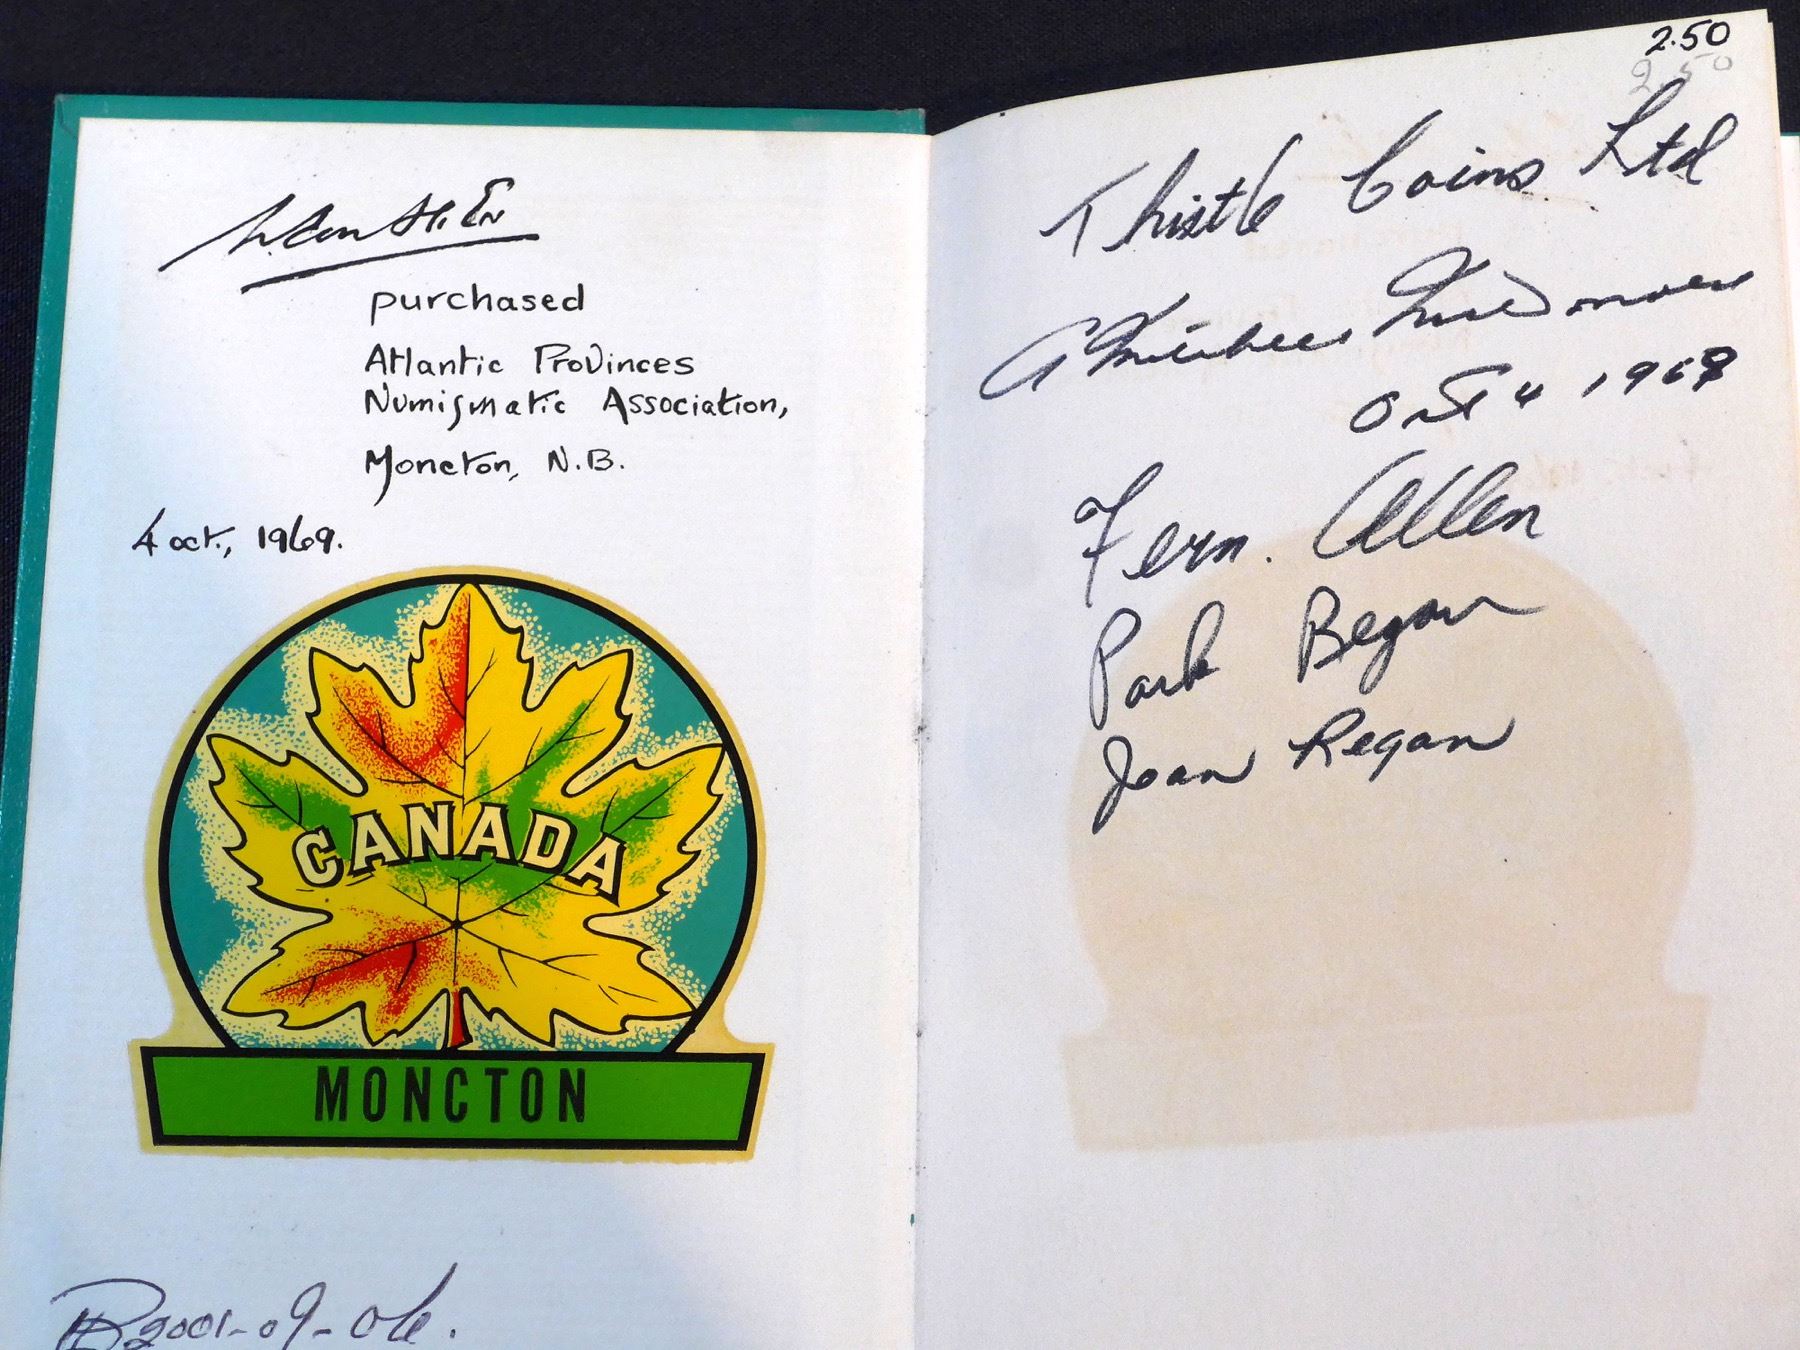 purchased
Atlantic Provinces
Numismatic Association,
Moncton, N.B.
4 oct., 1969.
CANADA
MONCTON
2001-09-06.
2.50
2.50
Thistle Coins Ltd
Oct 4, 1969
Fern. Allen
Park Regan
Joan Regan